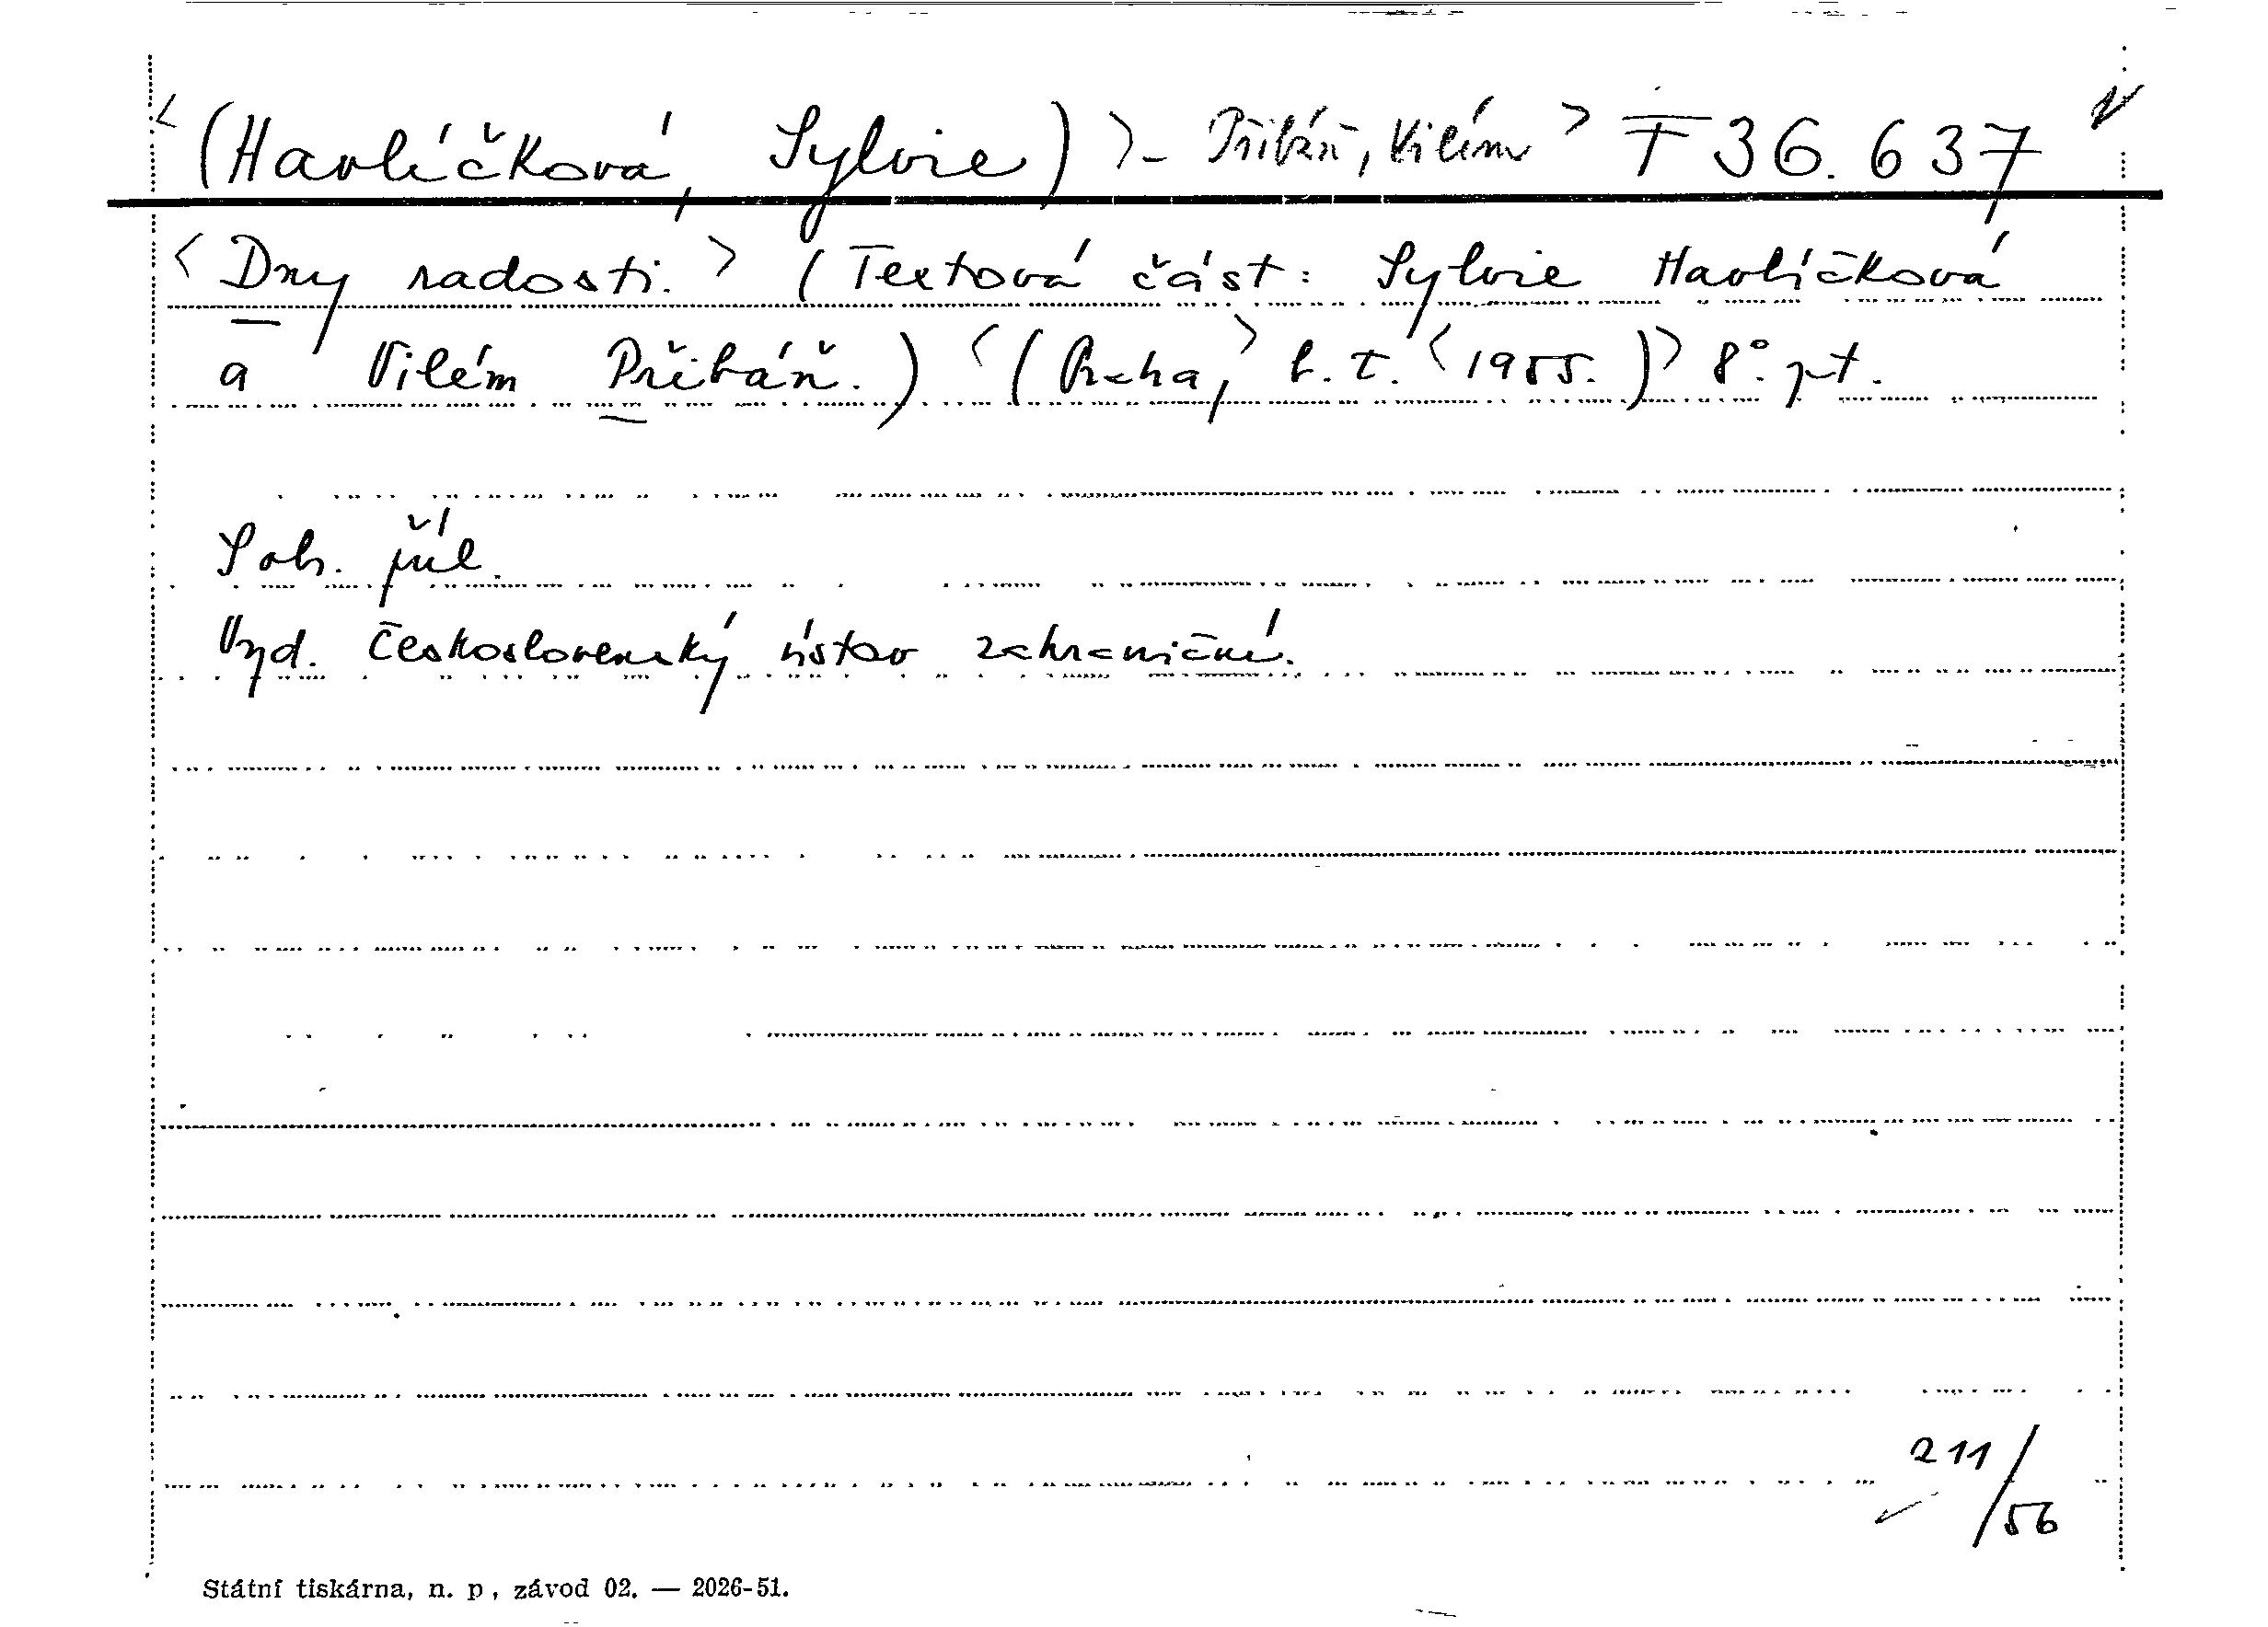 <(Havlíčková, Sylvie)>- Přibáň, Vilém> T 36.637
<Dny radosti.> (Textová část: Sylvie Havlíčková
a Vilém Přibáň.) <(Praha,> b. t. <1955.)> 8°. pt.
S ob. příl.
Vyd. Československý ústav zahraniční.
211/56
Státní tiskárna, n. p., závod 02. — 2026-51.